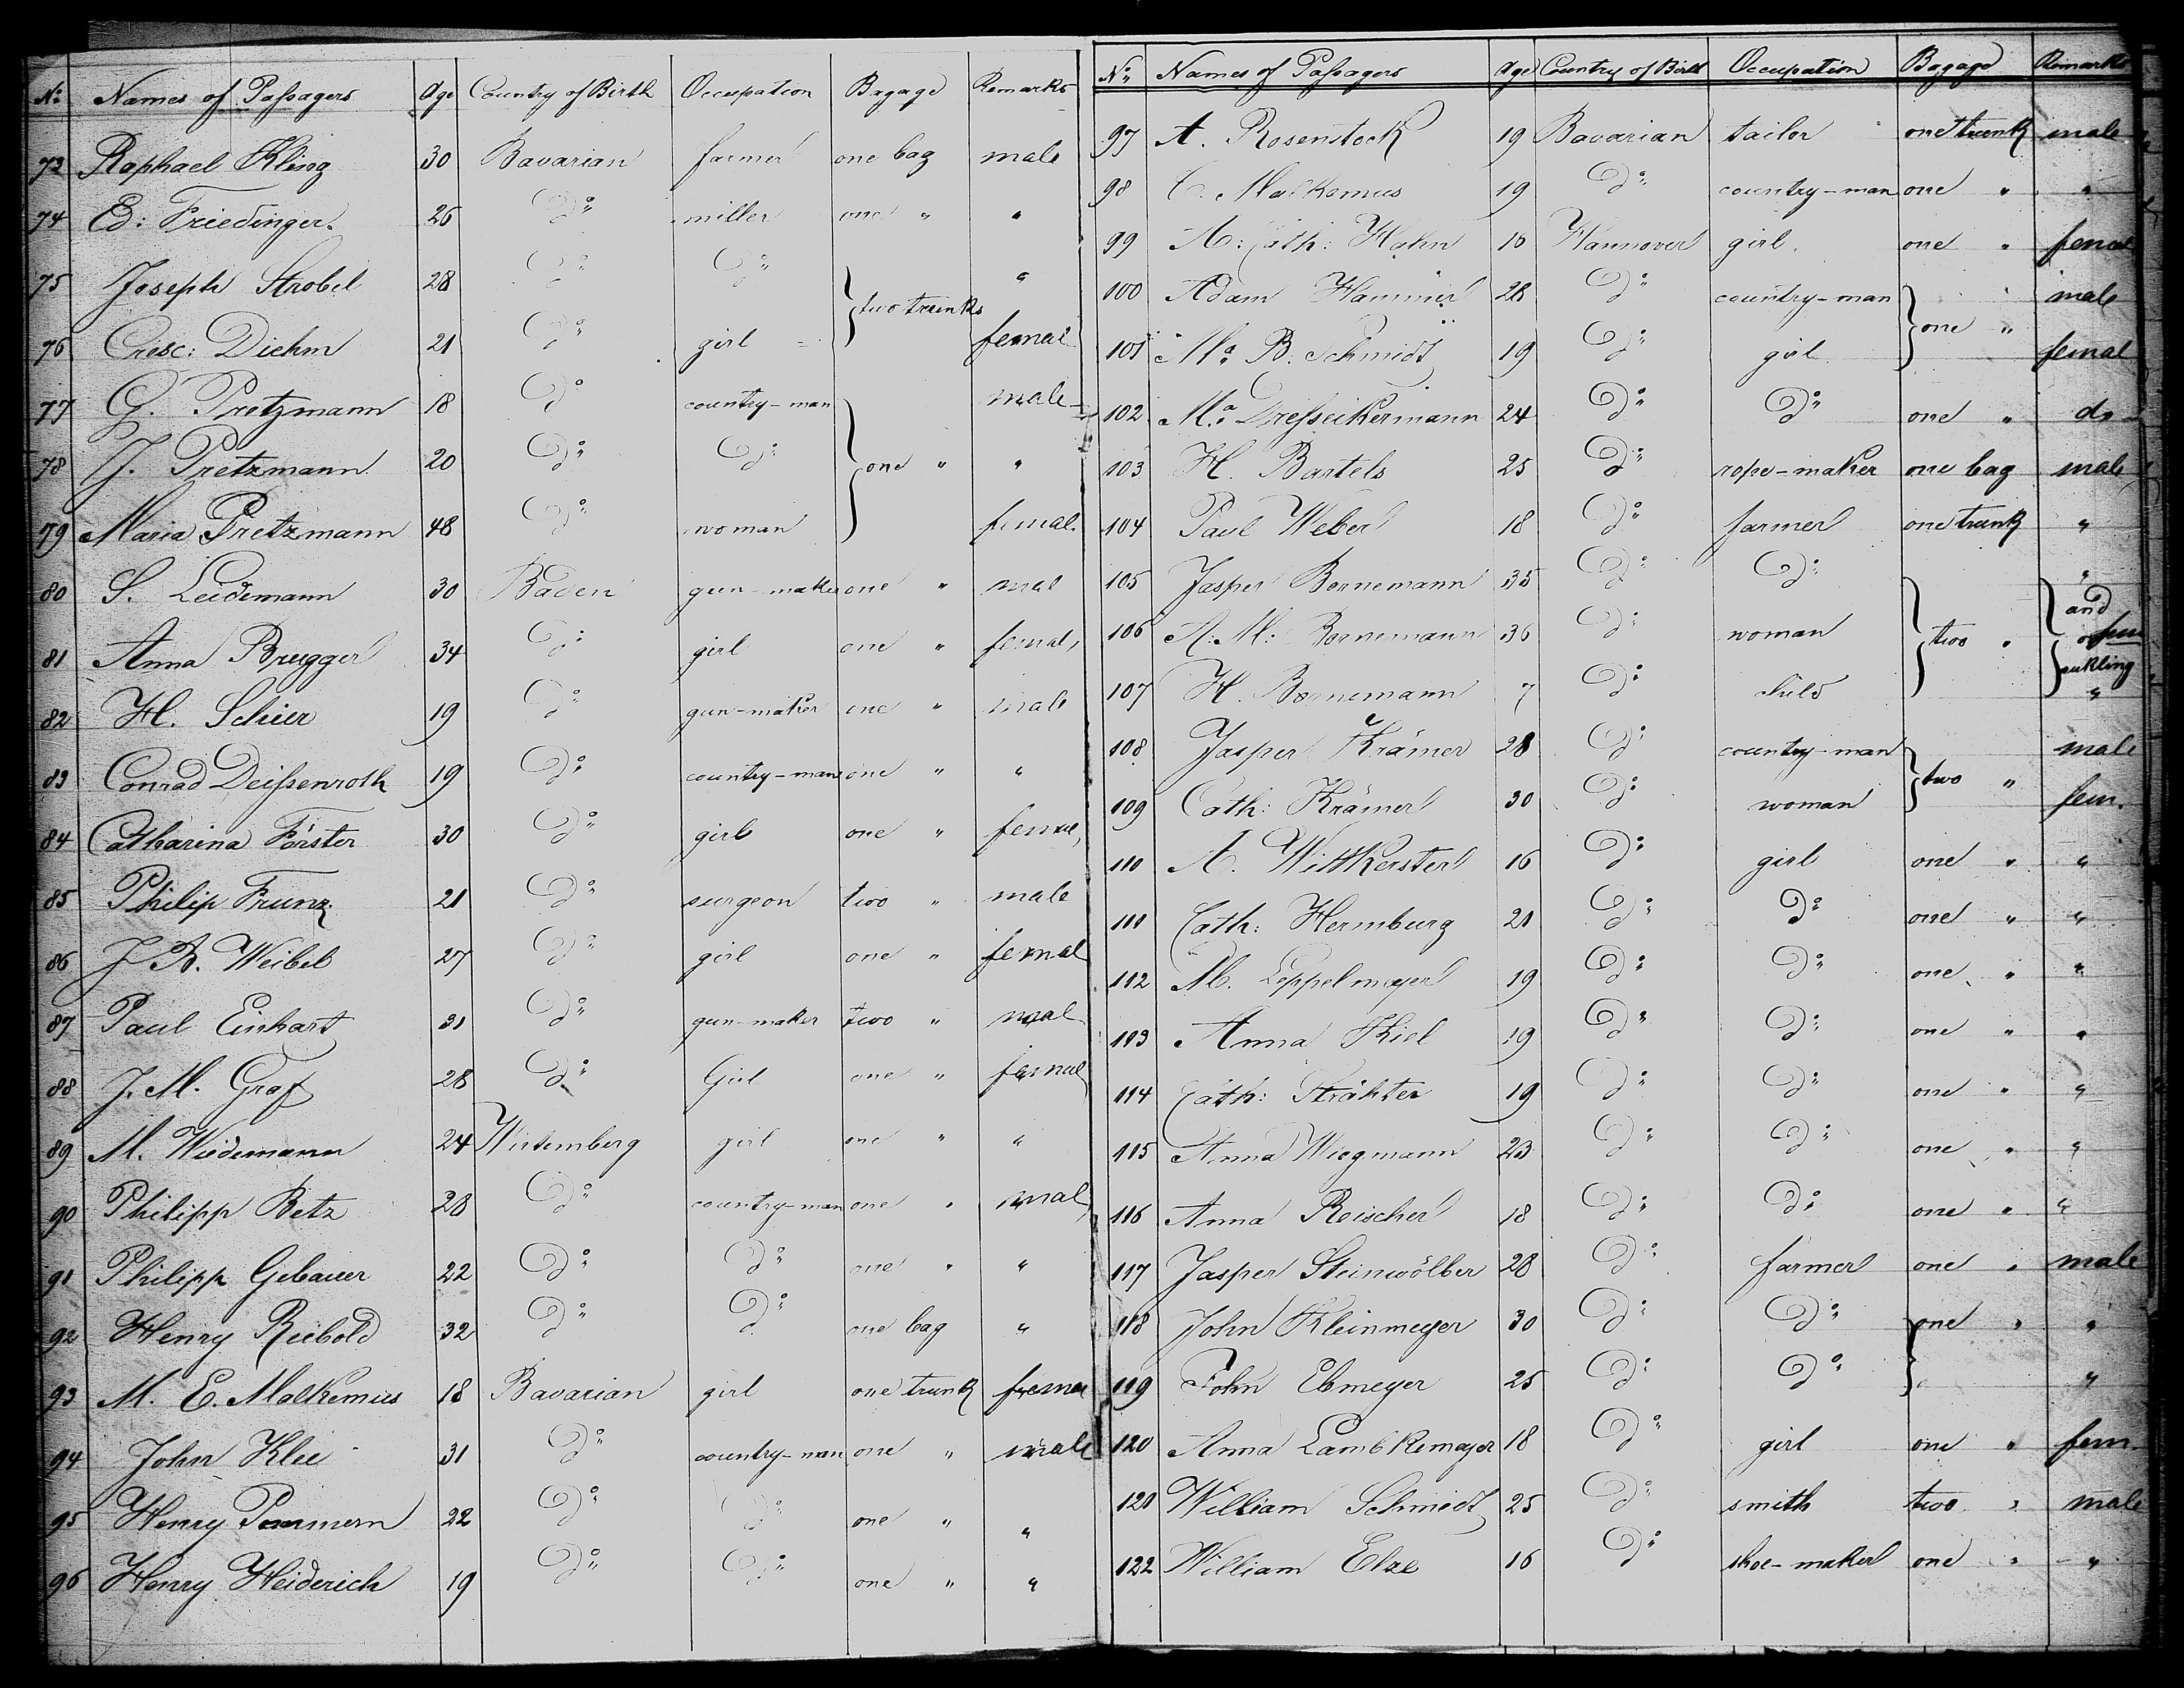 No: Names of Passagers Age Country of Birth Occupation Bagage Remarks
73 Raphael Kling 30 Bavarian farmer one bag male
74 Ed: Friedinger. 26 Do: miller one " "
75 Joseph Strobel 28 Do: Do: "
two trunks
76 Cresc: Diehm 21 Do: girl femal
77 G. Pretzmann 18 Do country-man male
78 J. Pretzmann 20 Do: Do: one " "
79 Maria Pretzmann 48 Do: woman femal
80 S. Leidemann 30 Baden gun-maker one " mal
81 Anna Brugger 34 Do: girl one " femal
82 H. Schier 19 Do: gun-maker one " male
83 Conrad Deissenroth 19 Do: country-man one " "
84 Catharina Förster 30 Do: girl one "
85 Philip Frunz 21 Do: surgeon two " male
86 J B. Weibel 27 Do: girl one " femal
87 Paul Einhart 31 Do: gun-maker two " mal
88 J. M. Graf 28 Do: Girl one " femal
89 M. Widemann 24 Wirtemberg girl one " "
90 Philipp Betz 28 Do: country-man one " mal
91 Philipp Gebauer 22 Do: Do: one " "
92 Henry Reibold 32 Do: Do: one bag "
93 M. E. Malkemus 18 Bavarian girl one trunk
94 John Klee 31 Do: country-man one " male
95 Henry 22 Do: Do: one " "
96 Henry Heiderich 19 Do: Do: one " "
No: Names of Passagers Age Country of Birth Occupation Bagage Remarks
97 A. Rosenstock 19 Bavarian tailor one trunk male
98 C. Malkemus 19 Do: country-man one " "
99 A: Cath: Hahn 16 Hannover girl. one " femal
100 Adam Hammer 28 Do: country-man male
one "
101 Ma B. Schmidt 19 Do: girl femal
102 Ma 24 Do: Do: one " do
103 H. Bartels 25 Do: rope-maker one bag male
104 Paul Weber 18 Do: farmer one trunk "
105 Jasper Bornemann 35 Do: Do: "
and
106 A: M: Bornemann 36 Do: woman two "
sukling
107 H. Bornemann 7 Do: child "
108 Jasper Krämer 28 Do: country-man male
two "
109 Cath: Krämer 30 Do: woman fem.
110 A. Wittkerster 16 Do: girl one " "
111 Cath: Hermburg 21 Do: Do: one " "
112 M. Leppelmeyer 19 Do: Do: one " "
113 Anna Kiel 19 Do: Do: one " "
114 Cath: Strähter 19 Do: Do: one " "
115 Anna Wiegmann 23 Do: Do: one " "
116 Anna Reischer 18 Do: Do: one " "
117 Jasper Steinwölber 28 Do: farmer one " male
118 John Kleinmeyer 30 Do: Do: one " "
119 John Ebmeyer 25 Do: Do: "
120 Anna Lambkemeyer 18 Do: girl one " fem
121 William Schmidt 25 Do: smith two " male
122 William Elze 16 Do: shoe-maker one " "